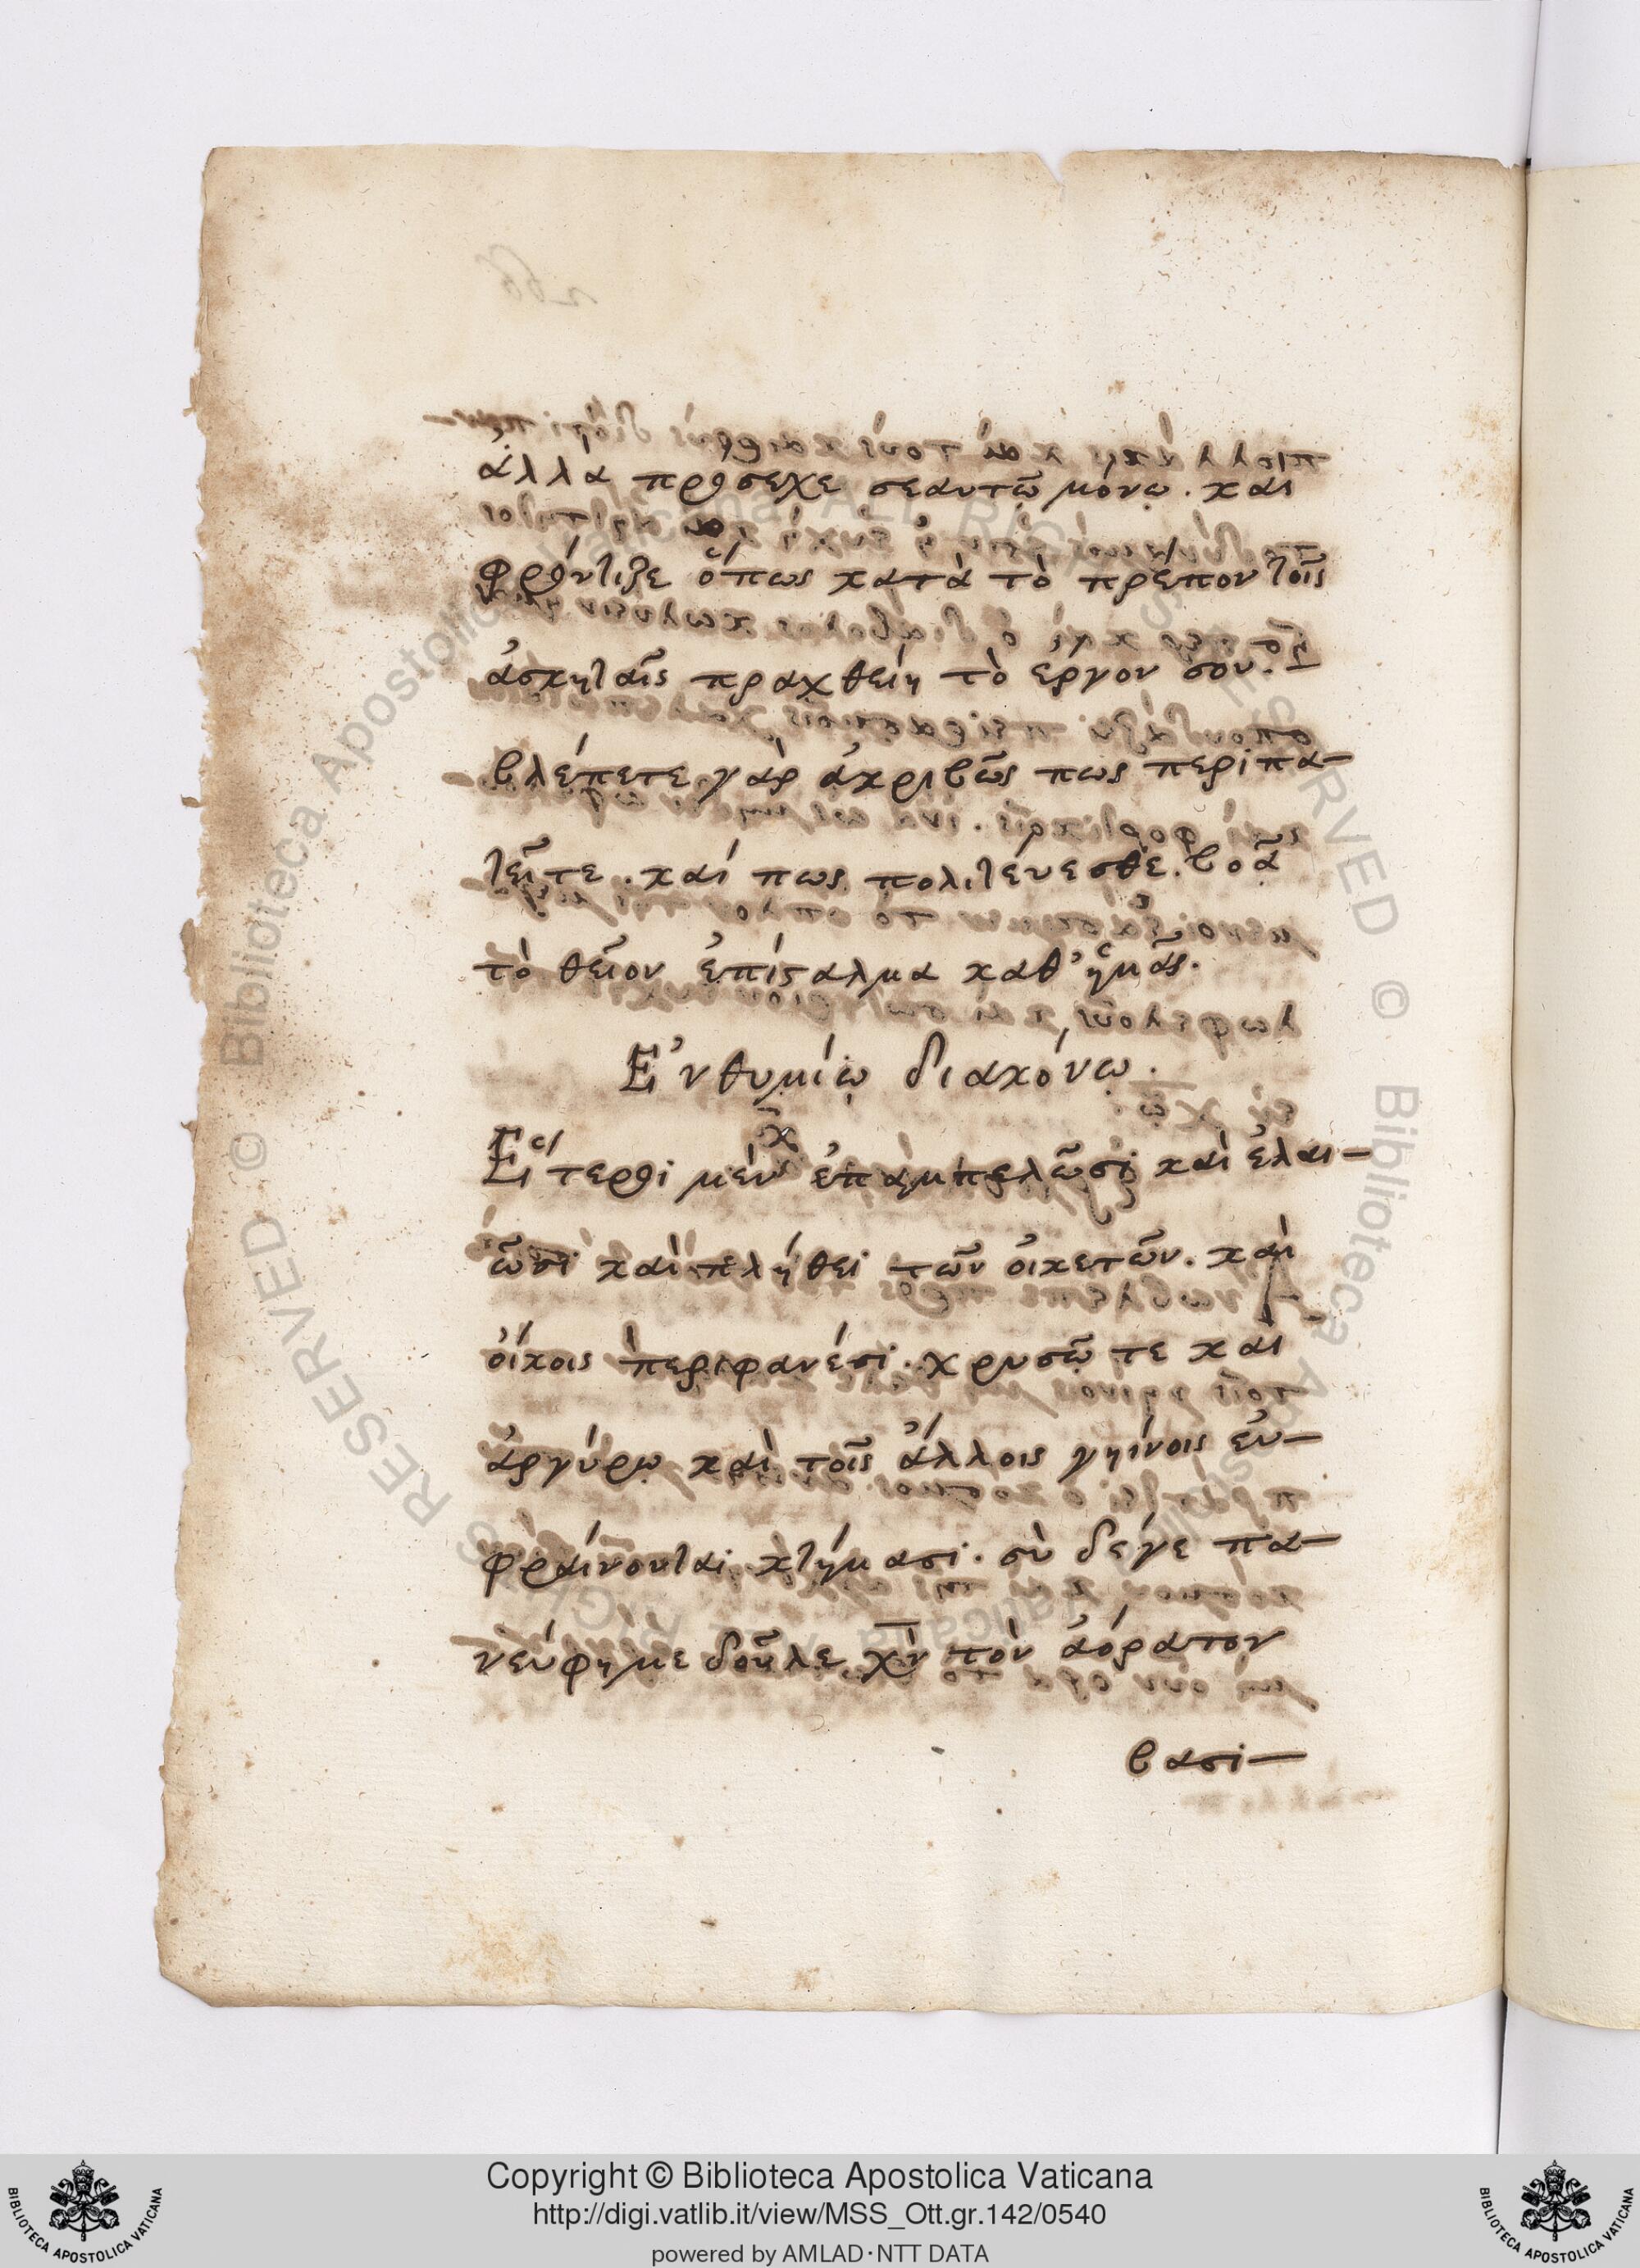 ἀλλα προσεχε σεαυτῶ μόνῳ. και
φρόντιζε ὅπως κατὰ τὸ πρέπον τοῖς
ἀσκηταῖς πραχθείη τὸ ἔργον σου.
βλέπετε γὰρ ἀκριβῶς πως περιπα-
τεῖτε. καί πως πολιτεύεσθε. βοᾶ
τὸ θεῖον ἐπίσταλμα καθ' ἡμᾶς.
Εὐθυμίῳ διακόνῳ.
Εἵτεροι μὲν ἐπ ἀμπελῶσι καὶ ἐλαι-
ῶσι καὶ πλήθει τῶν οἰκετῶν. καὶ
οἴκοις περιφανέσι. χρυσῷ τε και
ἀργύρῳ καὶ τοῖς ἄλλοις γηίνοις εὐ-
φραίνονται κτήμασι. σὺ δέγε πα-
νεύφημε δοῦλε χν τὸν ἀόρατον
βασι-
Copyright © Biblioteca Apostolica Vaticana
http://digi.vatlib.it/view/MSS_Ott.gr.142/0540
powered by AMLAD·NTT DATA